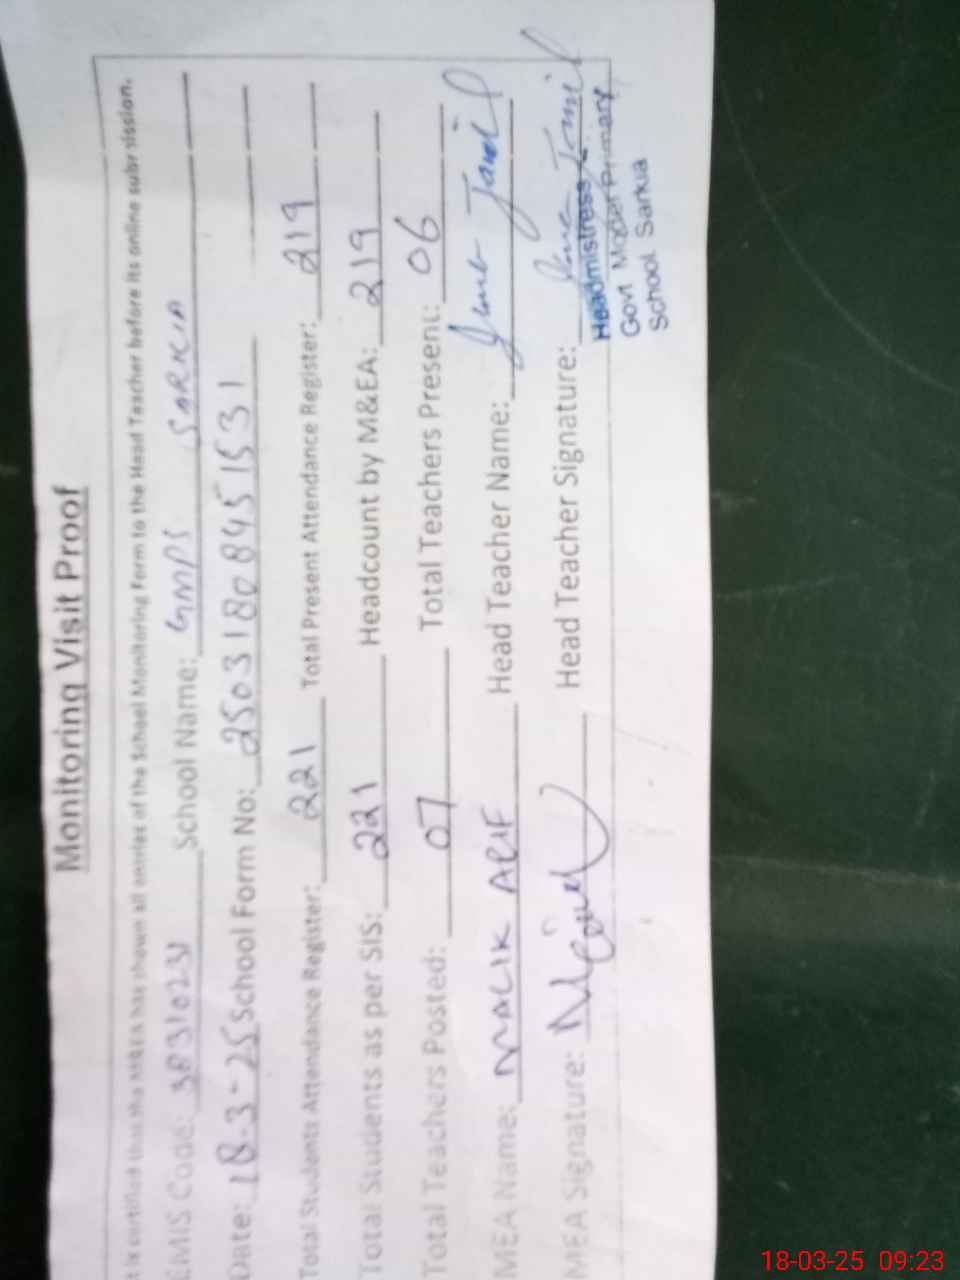 Monitoring Visit Proof
It is certified that the MEA has shown all entries of the School Monitoring Form to the Head Teacher before its online submission.
EMIS Code: 38310231 School Name: GMPS SARKIA
Date: 18-3-25 School Form No: 25031808451531
Total Students Attendance Register: 221 Total Present Attendance Register: 219
Total Students as per SIS: 221 Headcount by M&EA: 219
Total Teachers Posted: 07 Total Teachers Present: 06
MEA Name: MALIK ARIF Head Teacher Name: Jamil
MEA Signature: Head Teacher Signature: Jamil
Headmistress
Govt Model Primary
School Sarkia
18-03-25 09:23